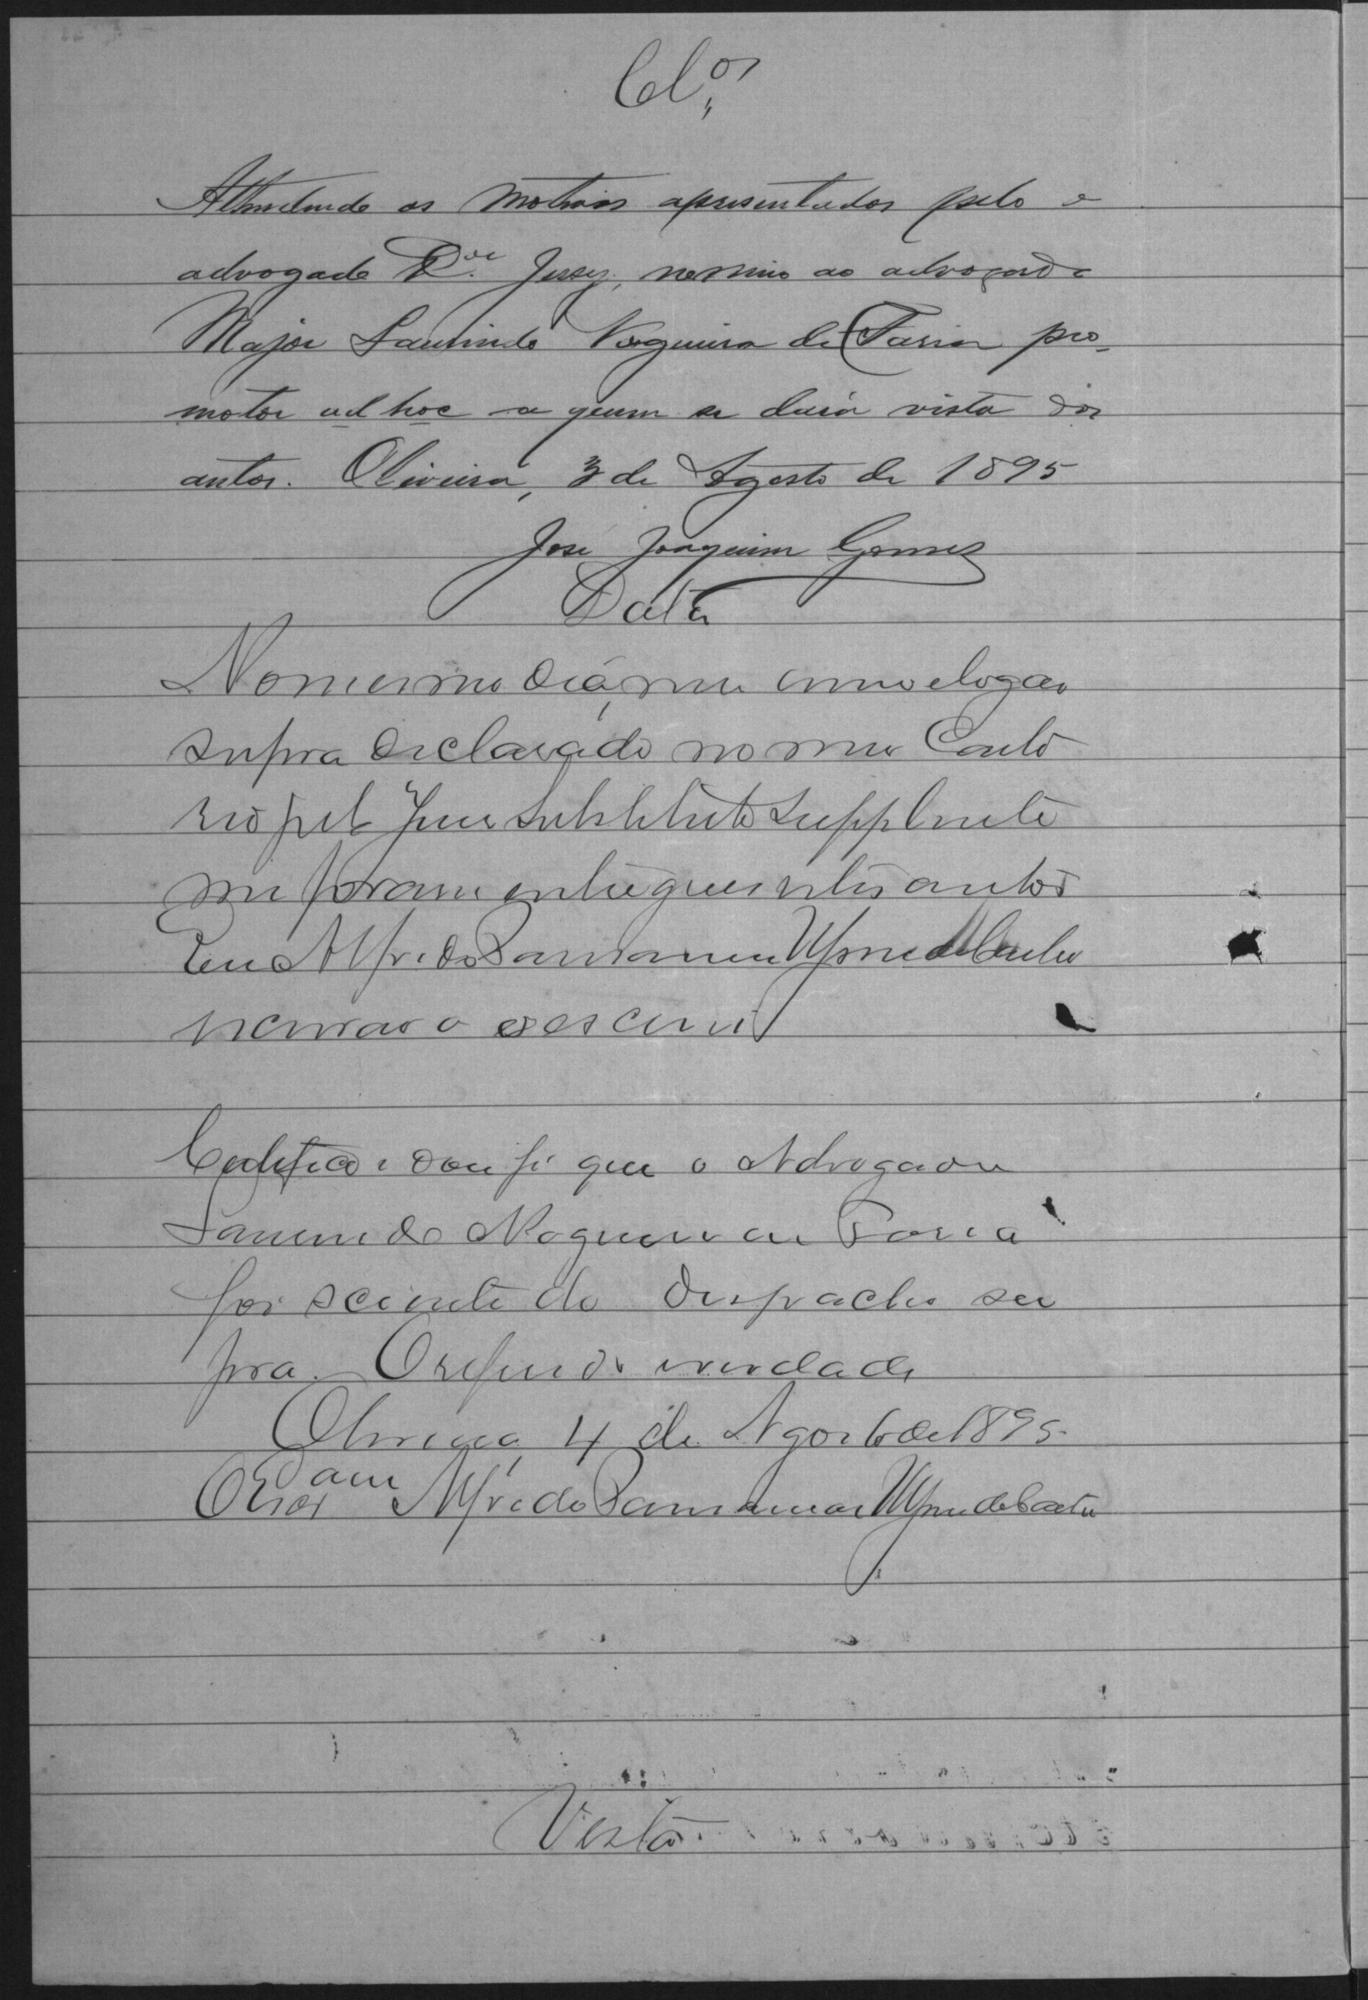 Cl.os
Attendendo os motivos apresentados pelo
advogado Jessy, nomeio ao advogado
Major Laurindo Nogueira de Faria pro-
motor ad hoc a quem se dará vista dos
autos. Oliveira, 3 de Agosto de 1895
José Joaquim Gomes
Data
No mesmo dia, mez anno e logar
supra declarado no meu Carto
rio pelo Juiz Substituto Supplente
me foram entregues estes autos
Eu Alfredo de Castro
escrivão o escrevi
Certifico e dou fé que o Advogado
Laurindo Nogueira de Faria
foi sciente do despacho su
pra. O referido é verdade
Oliveira, 4 de Agosto de 1895.
O Escr.am Alfredo de Castro
Vista